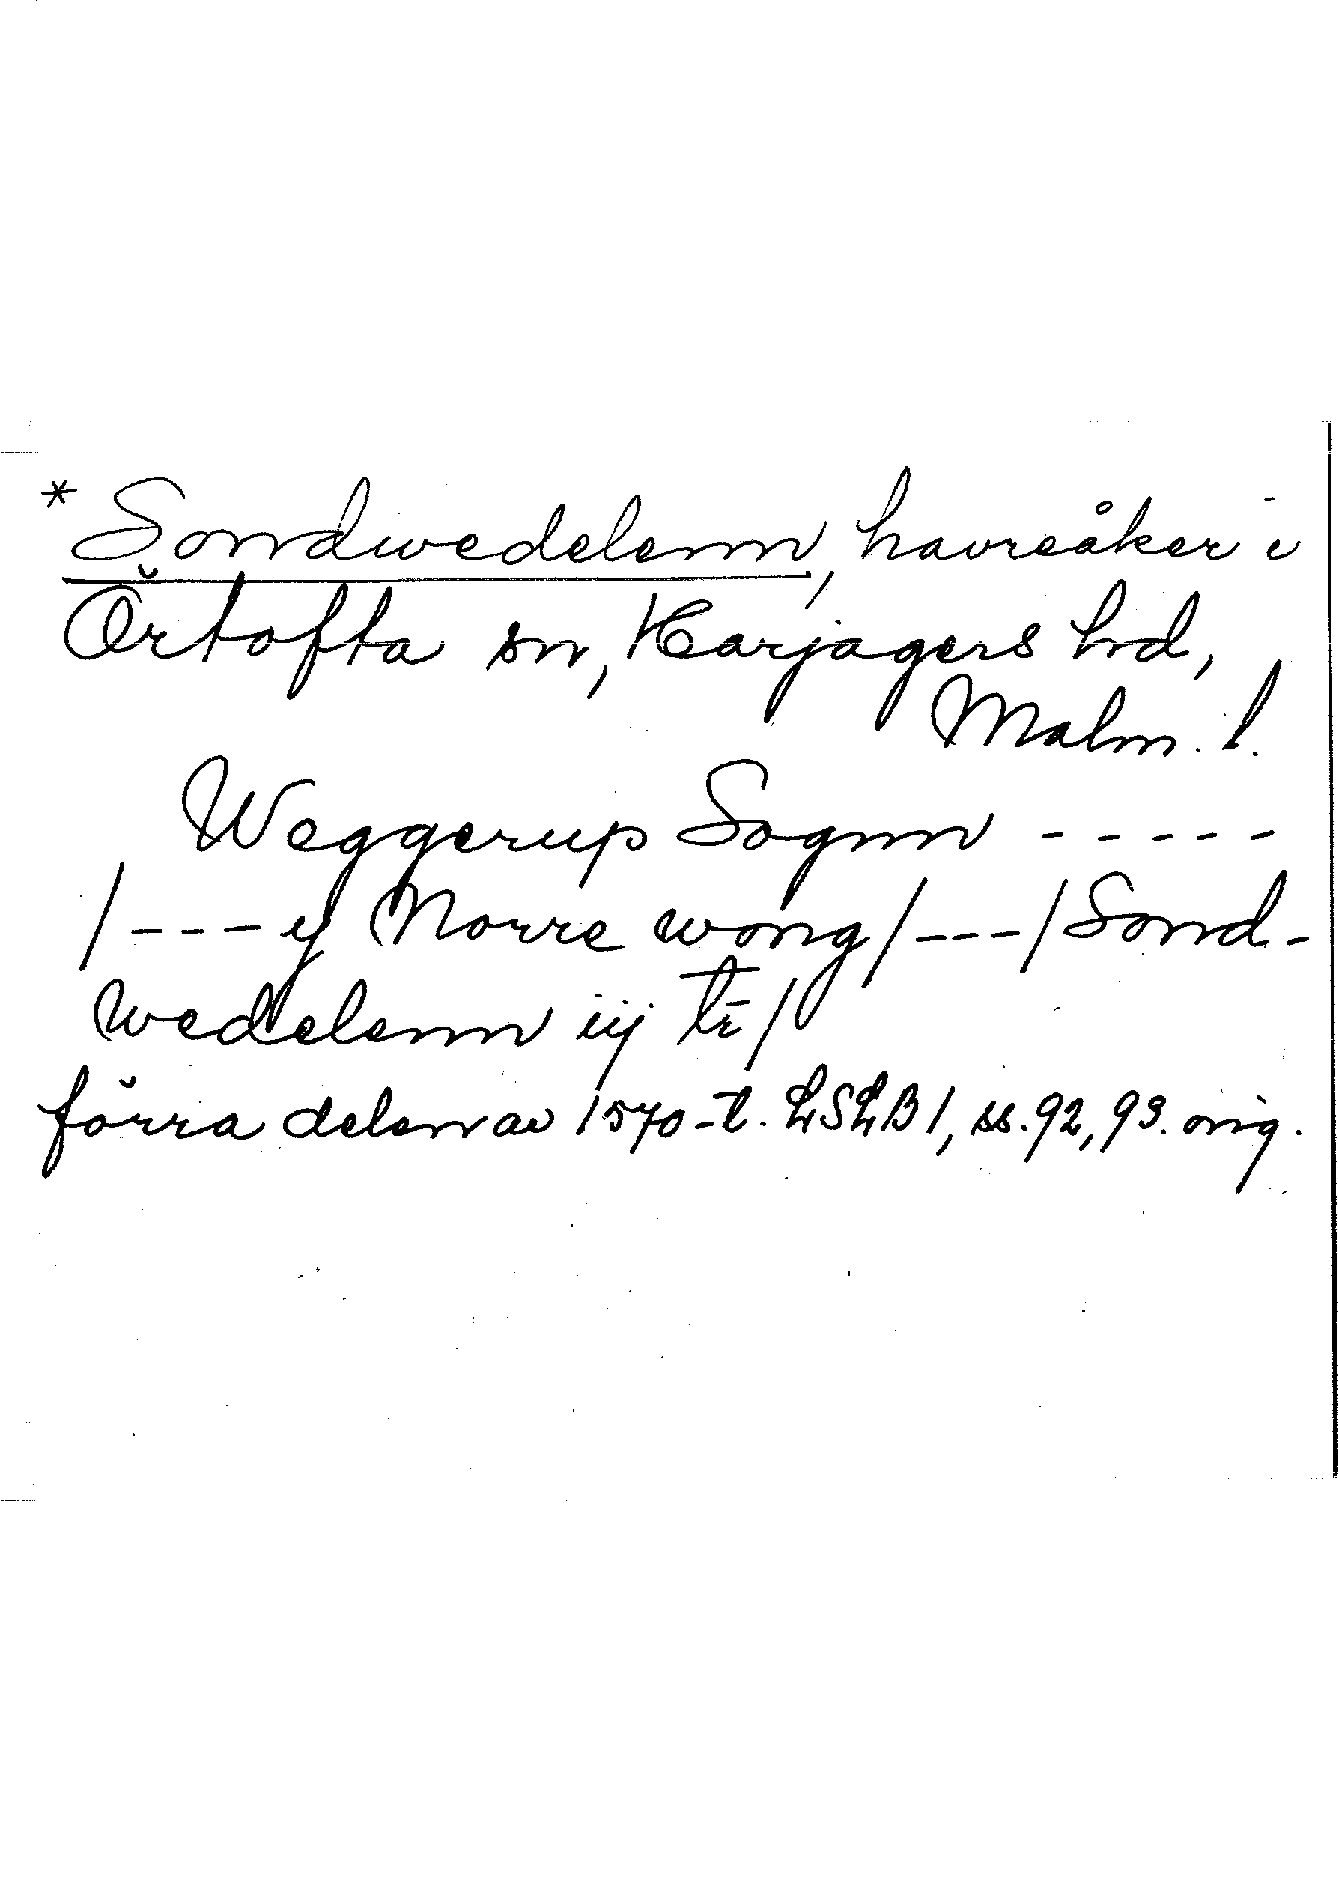 *Sondwedelenn, havreåker i
Örtofta sn, Harjagers hd,
Malm. l.
Weggerup Sognn - - - - -
/- - - y Norre wong/- - -/Sond-
wedelenn iij
förra delen av 1570-t. LSLB1, ss. 92, 93. orig.